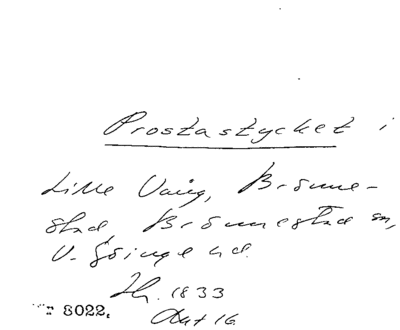 Prostastycket i
Lille Vång, Brönne-
stad, Brönnestad sn,
V. Göinge hd.
Th. 1833
Akt 16
nr 8022.